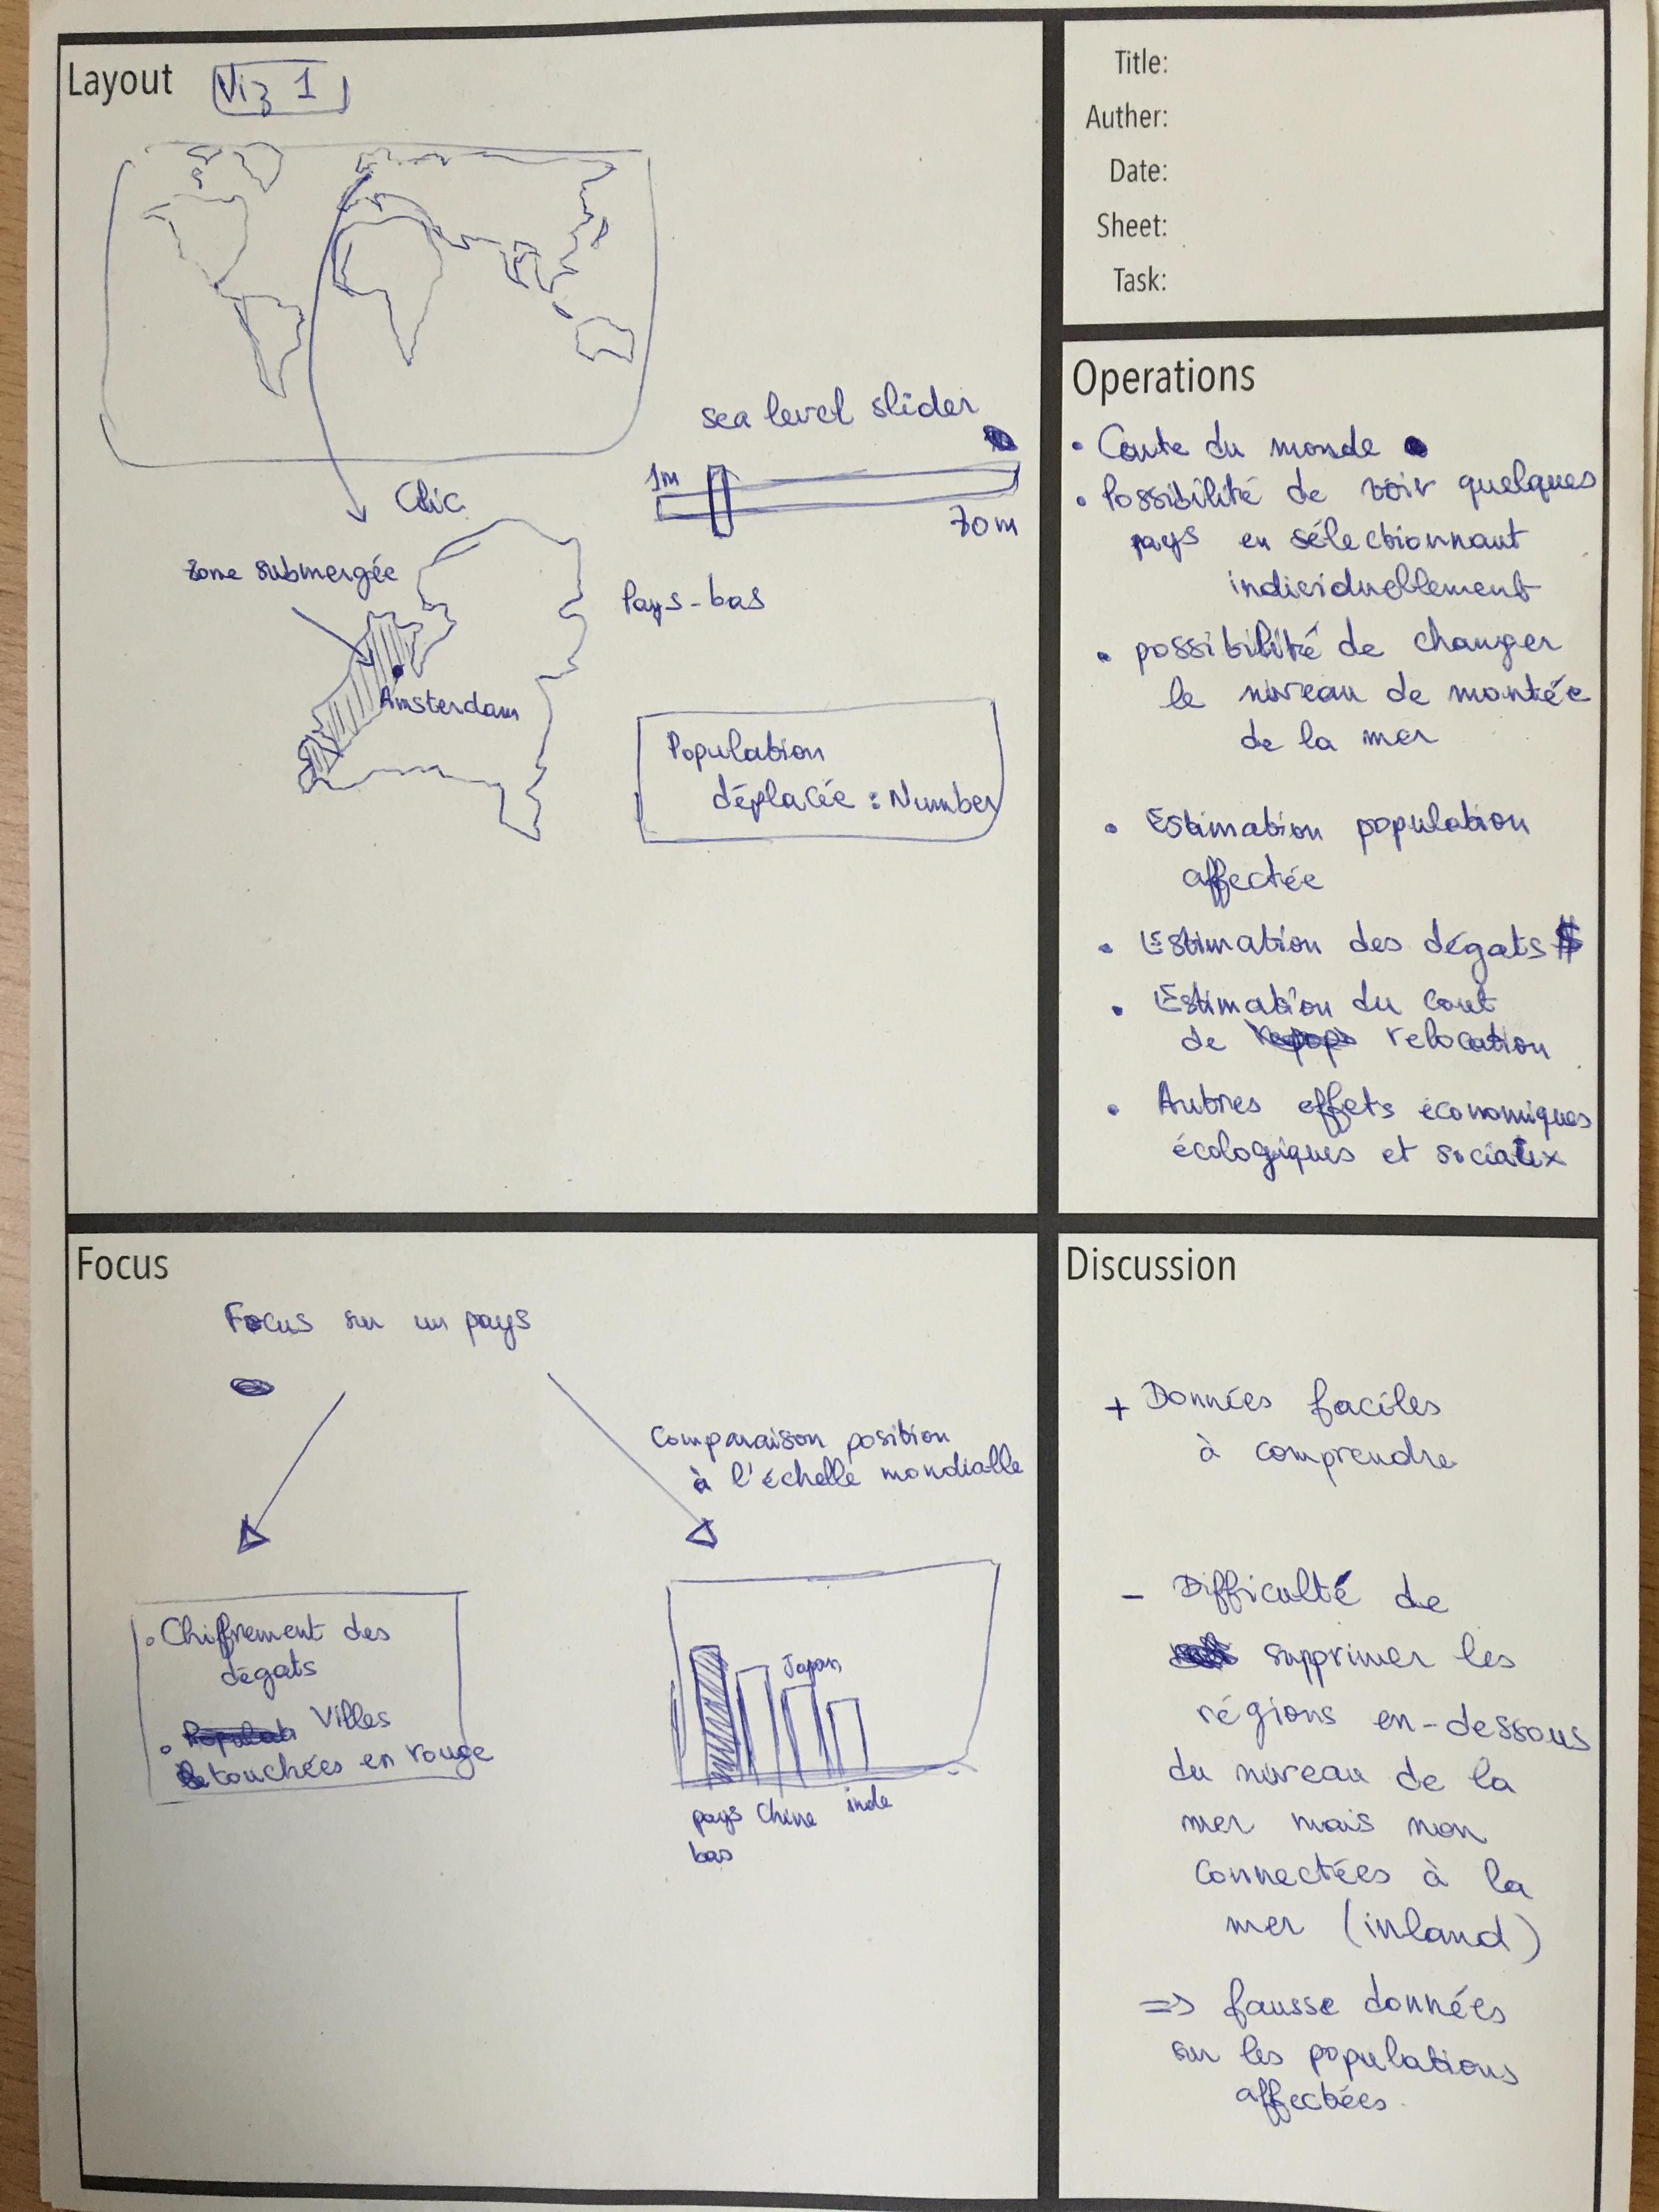 Layout
Viz 1
sea level slider
1m
70m
Clic
zone submergée
Pays-bas
Amsterdam
Population
déplacée : Number
Title:
Auther:
Date:
Sheet:
Task:
Operations
• Carte du monde
• Possibilité de voir quelques
pays en sélectionnant
individuellement
• possibilité de changer
le niveau de montée
de la mer
• Estimation population
affectée
• Estimation des dégats $
• Estimation du cout
de relocation
• Autres effets économiques
écologiques et sociaux
Focus
Focus sur un pays
Comparaison position
à l'échelle mondialle
• Chiffrement des
dégats
• Villes
touchées en rouge
Japan
pays Chine inde
bas
Discussion
+ Données faciles
à comprendre
- Difficulté de
supprimer les
régions en-dessous
du niveau de la
mer mais non
connectées à la
mer (inland)
=> fausse données
sur les populations
affectées.